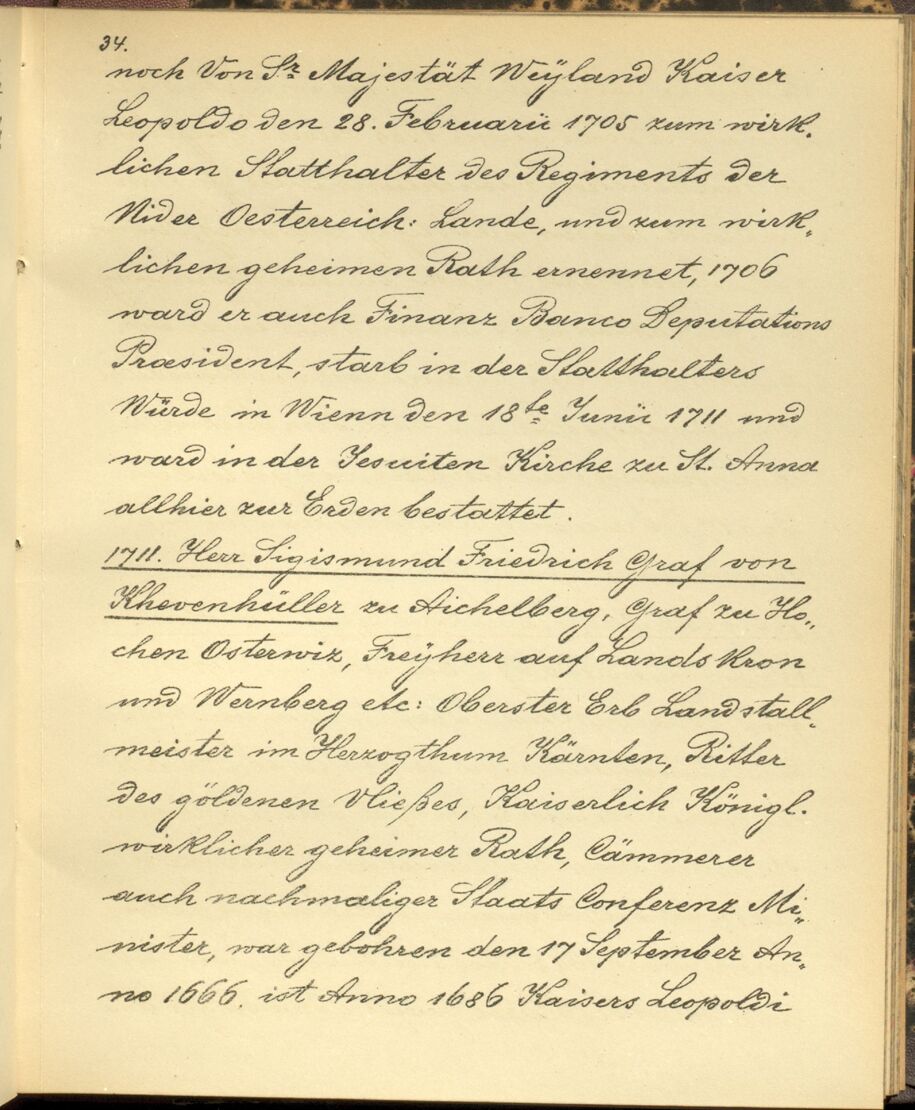 34.
noch Von Sr. Majestät Weÿland Kaiser
Leopoldo den 28. Februarii 1705 zum wirk,
lichen Statthalter des Regiments der
Nider Oesterreich: Lande, und zum wirk„
lichen geheimen Rath ernennet, 1706
ward er auch Finanz Banco Deputations
Præsident, starb in der Statthalters
Würde in Wienn den 18te Junii 1711 und
ward in der Jesuiten Kirche zu St. Anna
allhier zur Erden bestattet.
1711. Herr Sigismund Friedrich Graf von
Khevenhüller zu Aichelberg, Graf zu Ho„
chen Osterwiz, Freÿherr auf Lands Kron
und Wernberg etc: Oberster Erb Landstall„
meister im Herzogthum Kärnten, Ritter
des göldenen Vließes, Kaiserlich Königl.
wirklicher geheimer Rath, Cämmerer
auch nachmaliger Staats Conferenz Mi„
nister, war gebohren den 17 September An„
no 1666. ist Anno 1686 Kaisers Leopoldi